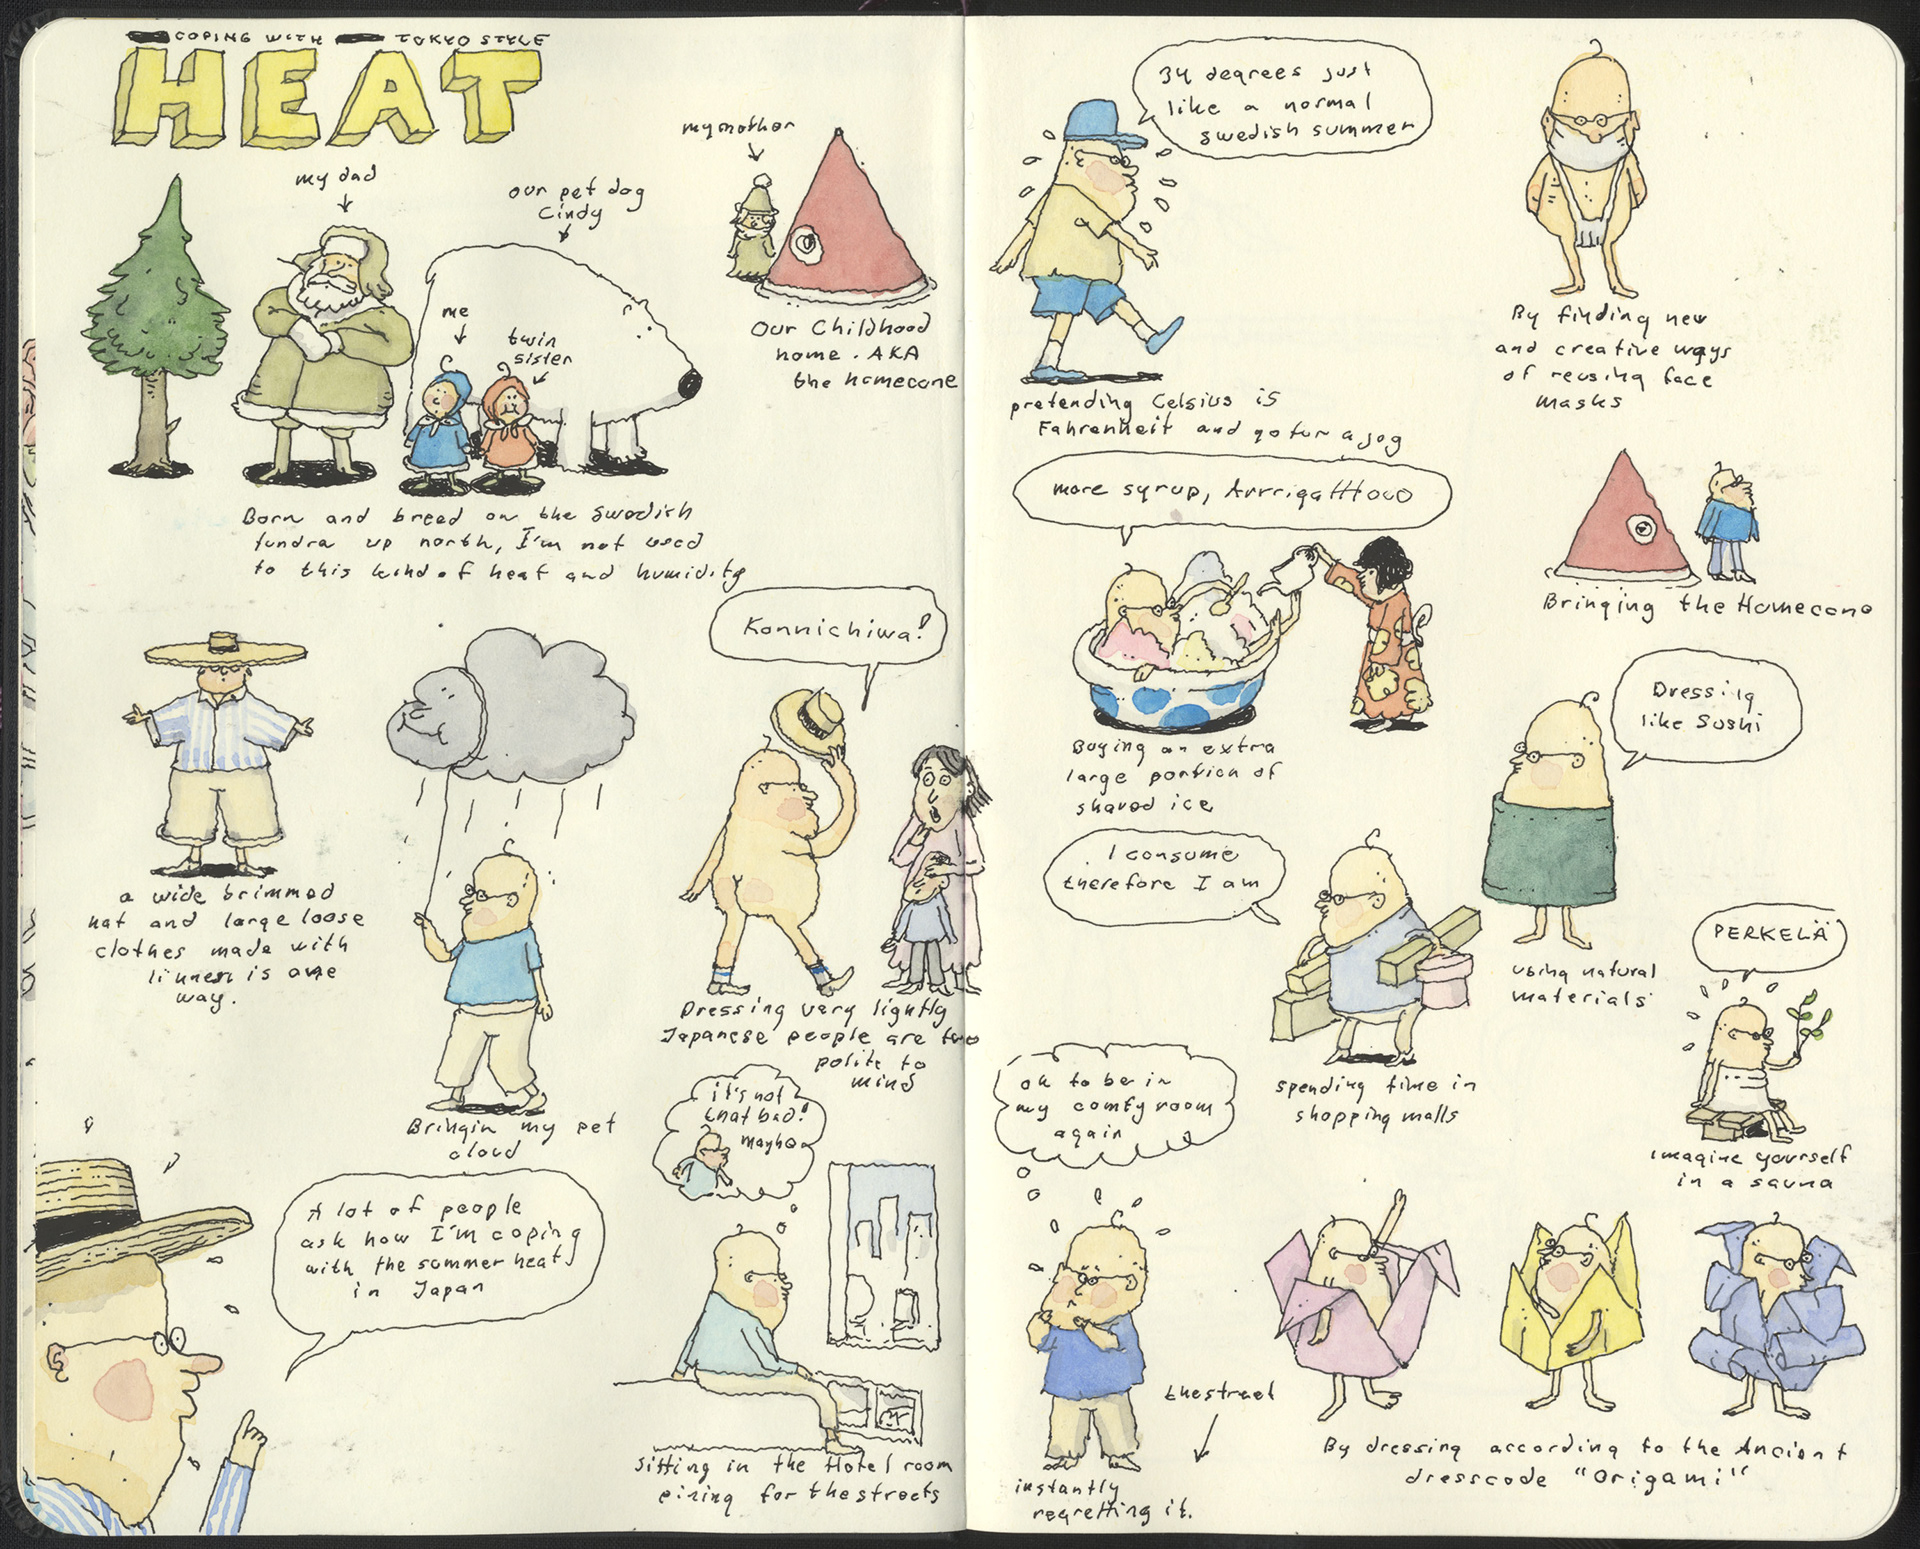 COPING WITH TOKYO STYLE
HEAT
my dad
our pet dog
Cindy
me
twin
sister
my mother
Our Childhood
home. AKA
the homecone
Born and breed on the Swedish
tundra up north, I'm not used
to this kind of heat and humidity
a wide brimmed
hat and large loose
clothes made with
linnen is one
way.
Bringin my pet
cloud
Konnichiwa!
Dressing very lightly
Japanese people are too
polite to
mind
A lot of people
ask how I'm coping
with the summer heat
in Japan
it's not
that bad!
maybe
Sitting in the Hotel room
pining for the streets
34 degrees just
like a normal
swedish summer
pretending Celsius is
Fahrenheit and go for a jog
By finding new
and creative ways
of reusing face
masks
more syrup, Arrrigatttooo
Buying an extra
large portion of
shaved ice
Bringing the Homecone
Dressing
like Sushi
using natural
materials
I consume
therefore I am
spending time in
shopping malls
PERKELÄ
imagine yourself
in a sauna
oh to be in
my comfy room
again
the street
instantly
regretting it.
By dressing according to the Ancient
dresscode "Origami"